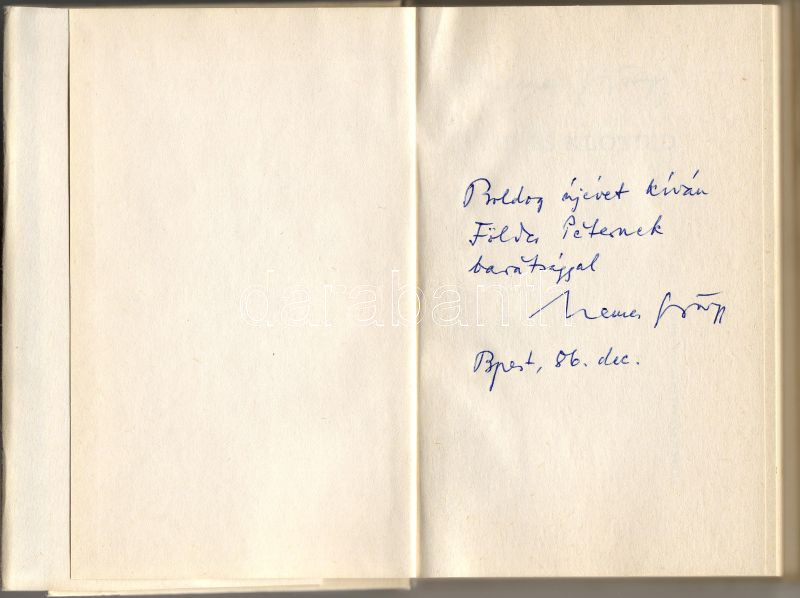 Boldog újévet kíván
Földes Péternek
barátsággal
Nemes György
Bpest, 86. dec.